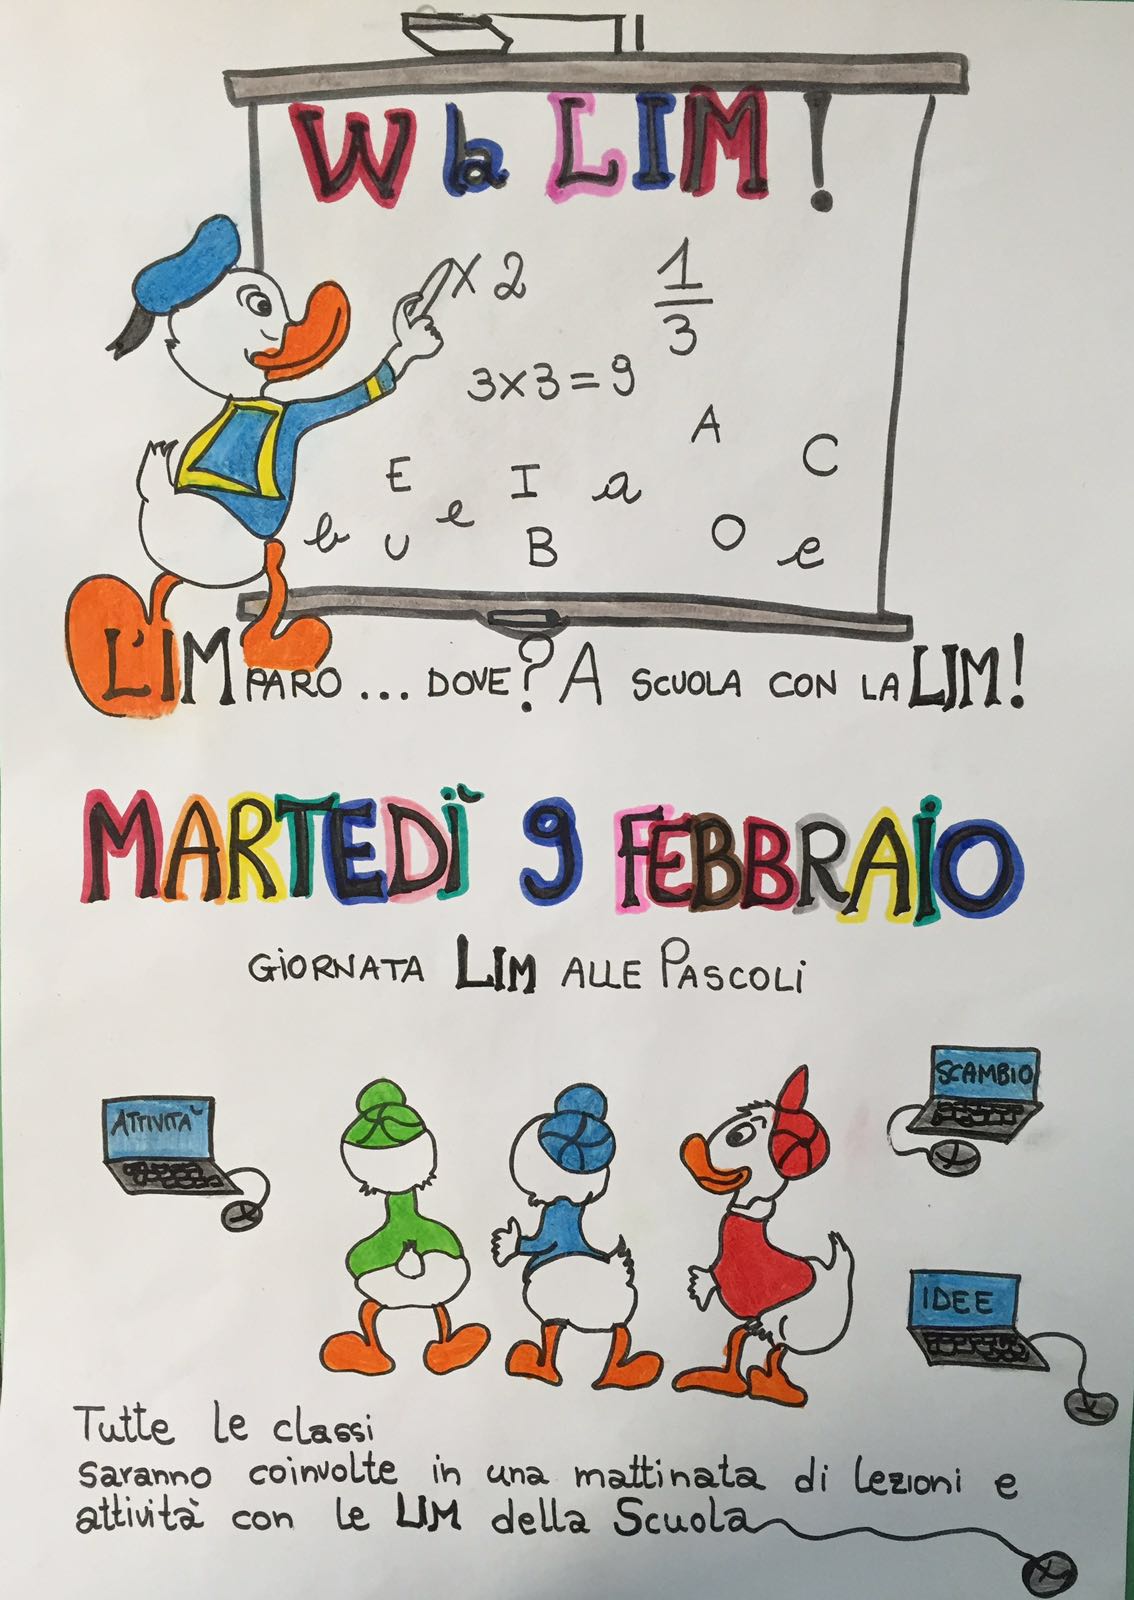 W la LIM!
x 2
1
3
3x3=9
A
C
E
I
a
e
b
U
B
O
e
L'IMPARO ... DOVE? A SCUOLA CON LA LIM!
MARTEDÌ 9 FEBBRAIO
GIORNATA LIM ALLE PASCOLI
SCAMBIO
ATTIVITÀ
IDEE
Tutte le classi
saranno coinvolte in una mattinata di lezioni e
attività con le LIM della Scuola